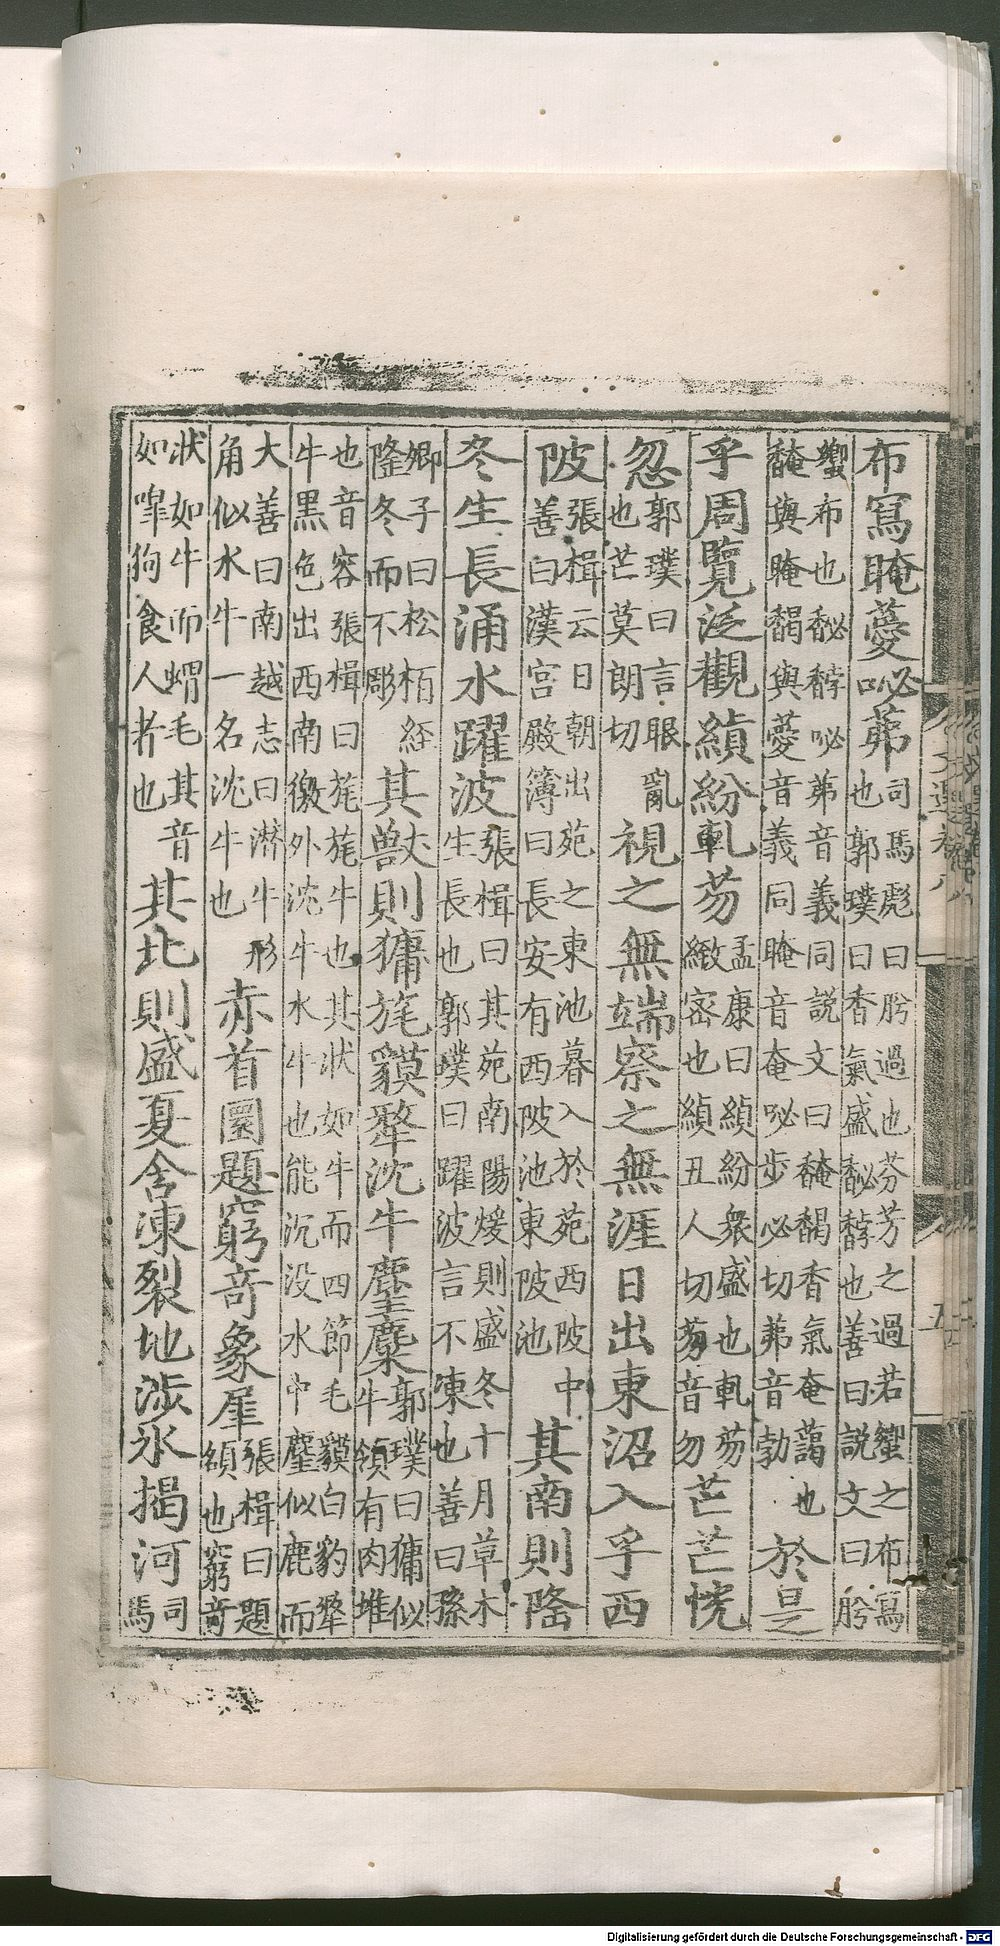 布寫晻薆咇茀司馬彪曰肸過也芬芳之過若蠁之布寫
也郭璞曰香氣盛馝馞也善曰説文曰肸
蠁布也馝馞咇茀音義同説文曰馣馤香氣奄藹也
馣與晻馤與薆音義同晻音奄咇步必切茀音勃於是
乎周覽泛觀縝紛軋芴孟康曰縝紛衆盛也軋芴
緻密也縝丑人切芴音勿芒芒恍
忽郭璞曰言眼亂
也芒莫朗切視之無端察之無涯日出東沼入乎西
陂張楫云日朝出苑之東池暮入於苑西陂中
善曰漢宮殿簿曰長安有西陂池東陂池其南則隆
冬生長涌水躍波張楫曰其苑南陽煖則盛冬十月草木
生長也郭璞曰躍波言不凍也善曰孫
卿子曰松栢経
隆冬而不彫其獸則㺎旄貘犛沈牛麈麋郭璞曰㺎似
牛領有肉堆
也音容張楫曰旄旄牛也其狀如牛而四節毛貘白豹犛
牛黑色出西南徼外沈牛水牛也能沉没水中麈似鹿而
大善曰南越志曰潛牛形
角似水牛一名沈牛也赤首圜題窮奇象犀張楫曰題
頟也窮奇
狀如牛而蝟毛其音
如嘷狗食人者也其北則盛夏含凍裂地涉氷揭河司
馬
Digitalisierung gefördert durch die Deutsche Forschungsgemeinschaft - DFG